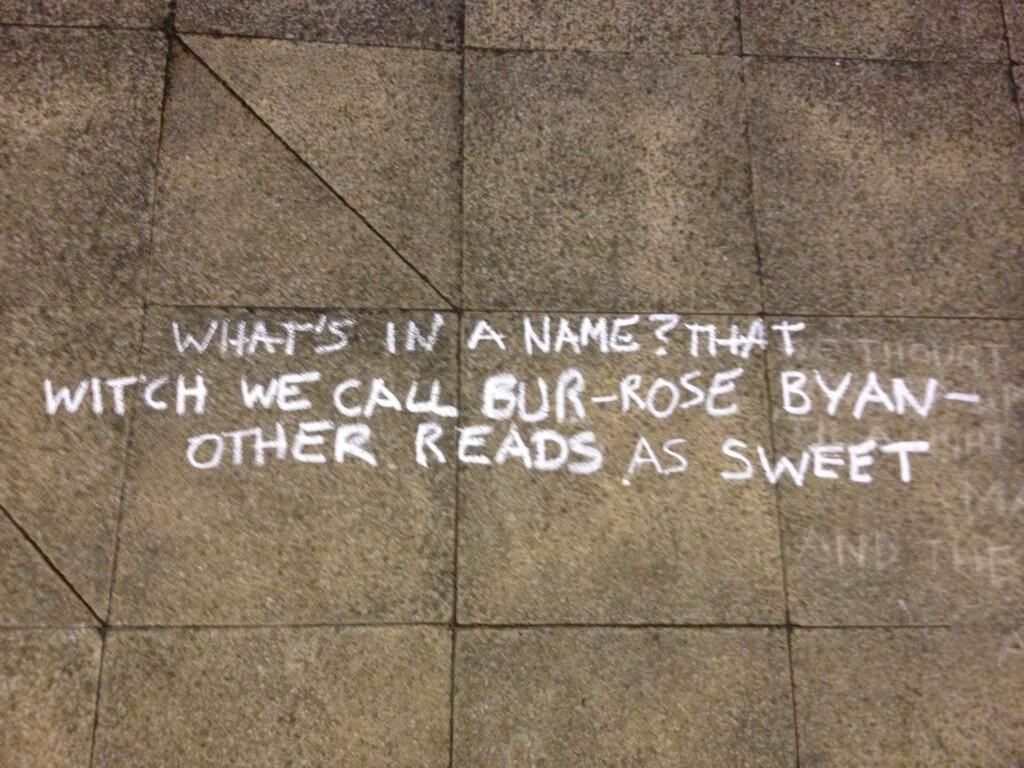 WHAT'S IN A NAME? THAT
WITCH WE CALL BUR-ROSE BYAN-
OTHER READS AS SWEET
THOUGHT
AND THE